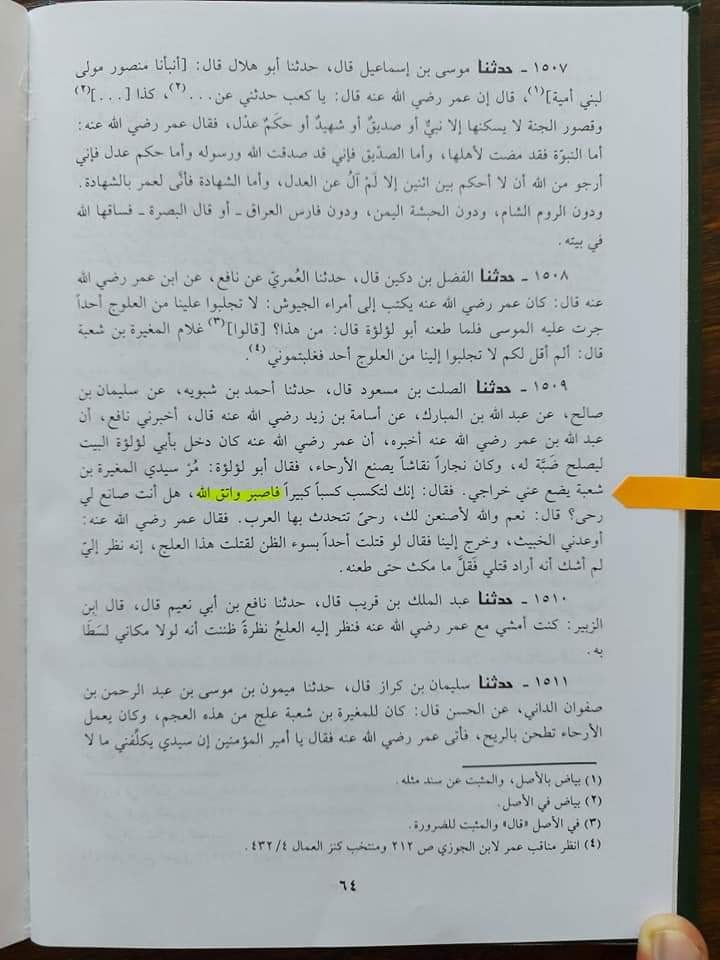 ١٥٠٧ ـ حدثنا موسى بن إسماعيل قال، حدثنا أبو هلال قال: [أنبأنا منصور مولى
لبني أمية](١)، قال إن عمر رضي الله عنه قال: يا كعب حدثني عن...(٢)، كذا [...](٢)
وقصور الجنة لا يسكنها إلا نبيٌّ أو صديقٌ أو شهيدٌ أو حكَمٌ عدْل، فقال عمر رضي الله عنه:
أما النبوّة فقد مضت لأهلها، وأما الصدّيق فإني قد صدقت الله ورسوله وأما حكم عدل فإني
أرجو من الله أن لا أحكم بين اثنين إلا لَمْ آلُ عن العدل، وأما الشهادة فأنَّى لعمر بالشهادة.
ودون الروم الشام، ودون الحبشة اليمن، ودون فارس العراق ـ أو قال البصرة ـ فساقها الله
في بيته.
١٥٠٨ ـ حدثنا الفضل بن دكين قال، حدثنا العُمريّ عن نافع، عن ابن عمر رضي الله
عنه قال: كان عمر رضي الله عنه يكتب إلى أمراء الجيوش: لا تجلبوا علينا من العلوج أحداً
جرت عليه الموسى فلما طعنه أبو لؤلؤة قال: من هذا؟ [قالوا](٣) غلام المغيرة بن شعبة
قال: ألم أقل لكم لا تجلبوا إلينا من العلوج أحد فغلبتموني(٤).
١٥٠٩ ـ حدثنا الصلت بن مسعود قال، حدثنا أحمد بن شبويه، عن سليمان بن
صالح، عن عبد الله بن المبارك، عن أسامة بن زيد رضي الله عنه قال، أخبرني نافع، أن
عبد الله بن عمر رضي الله عنه أخبره، أن عمر رضي الله عنه كان دخل بأبي لؤلؤة البيت
ليصلح ضَبَّة له، وكان نجاراً نقاشاً يصنع الأرحاء، فقال أبو لؤلؤة: مُرْ سيدي المغيرة بن
شعبة يضع عني خراجي. فقال: إنك لتكسب كسباً كبيراً فاصبر واتق الله، هل أنت صانع لي
رحى؟ قال: نعم والله لأصنعن لك، رحىً تتحدث بها العرب. فقال عمر رضي الله عنه:
أوعدني الخبيث، وخرج إلينا فقال لو قتلت أحداً بسوء الظن لقتلت هذا العلج، إنه نظر إليّ
لم أشك أنه أراد قتلي فَقلَّ ما مكث حتى طعنه.
١٥١٠ ـ حدثنا عبد الملك بن قريب قال، حدثنا نافع بن أبي نعيم قال، قال ابن
الزبير: كنت أمشي مع عمر رضي الله عنه فنظر إليه العلجُ نظرةً ظننت أنه لولا مكاني لسَطَا
به.
١٥١١ ـ حدثنا سليمان بن كراز قال، حدثنا ميمون بن موسى بن عبد الرحمن بن
صفوان الداني، عن الحسن قال: كان للمغيرة بن شعبة علج من هذه العجم، وكان يعمل
الأرحاء تطحن بالريح، فأتى عمر رضي الله عنه فقال يا أمير المؤمنين إن سيدي يكلِّفني ما لا
(١) بياض بالأصل، والمثبت عن سند مثله.
(٢) بياض في الأصل.
(٣) في الأصل «قال» والمثبت للضرورة.
(٤) انظر مناقب عمر لابن الجوزي ص ٢١٢ ومنتخب كنز العمال ٤/ ٤٣٢.
٦٤